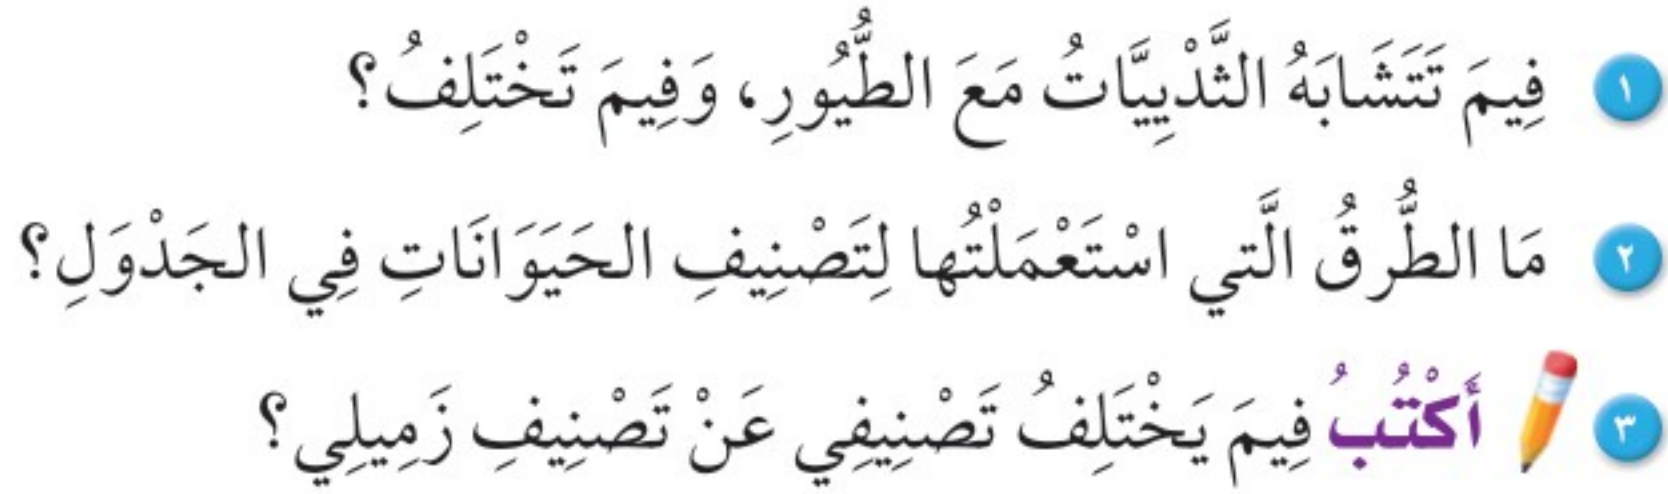 ١ فِيمَ تَتَشَابَهُ الثَّدْيِيَّاتُ مَعَ الطُّيُورِ، وَفِيمَ تَخْتَلِفُ؟
٢ مَا الطُّرقُ الَّتي اسْتَعْمَلْتُها لِتَصْنِيفِ الحَيَوَانَاتِ فِي الجَدْوَلِ؟
٣ أَكْتُبُ فِيمَ يَخْتَلِفُ تَصْنِيفِي عَنْ تَصْنِيفِ زَمِيلِي؟